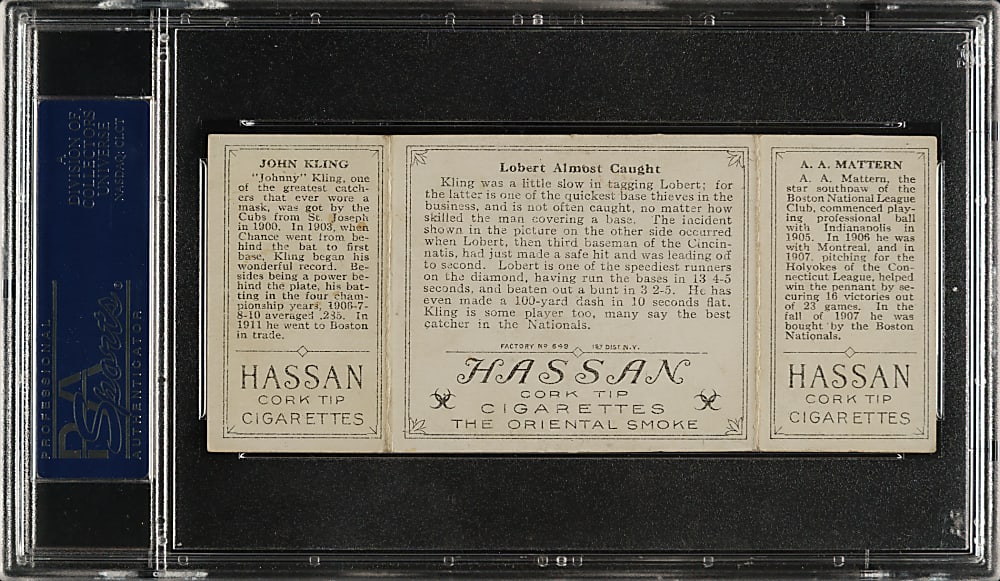 JOHN KLING
"Johnny" Kling, one
of the greatest catch-
ers that ever wore a
mask, was got by the
Cubs from St. Joseph
in 1900. In 1903, when
Chance went from be-
hind the bat to first
base, Kling began his
wonderful record. Be-
sides being a power be-
hind the plate, his bat-
ting in the four cham-
pionship years, 1906-7-
8-10 averaged .235. In
1911 he went to Boston
in trade.
HASSAN
CORK TIP
CIGARETTES
Lobert Almost Caught
Kling was a little slow in tagging Lobert; for
the latter is one of the quickest base thieves in the
business, and is not often caught, no matter how
skilled the man covering a base. The incident
shown in the picture on the other side occurred
when Lobert, then third baseman of the Cincin-
natis, had just made a safe hit and was leading off
to second. Lobert is one of the speediest runners
on the diamond, having run the bases in 13 4-5
seconds, and beaten out a bunt in 3 2-5. He has
even made a 100-yard dash in 10 seconds flat.
Kling is some player too, many say the best
catcher in the Nationals.
FACTORY Nº 649 1ST DIST. N.Y.
HASSAN
CORK TIP
CIGARETTES
THE ORIENTAL SMOKE
A. A. MATTERN
A. A. Mattern, the
star southpaw of the
Boston National League
Club, commenced play-
ing professional ball
with Indianapolis in
1905. In 1906 he was
with Montreal, and in
1907, pitching for the
Holyokes of the Con-
necticut League, helped
win the pennant by se-
curing 16 victories out
of 23 games. In the
fall of 1907 he was
bought by the Boston
Nationals.
HASSAN
CORK TIP
CIGARETTES
A
DIVISION OF
COLLECTORS
UNIVERSE
NASDAQ: CLCT
PROFESSIONAL
PSA
Sports
AUTHENTICATOR